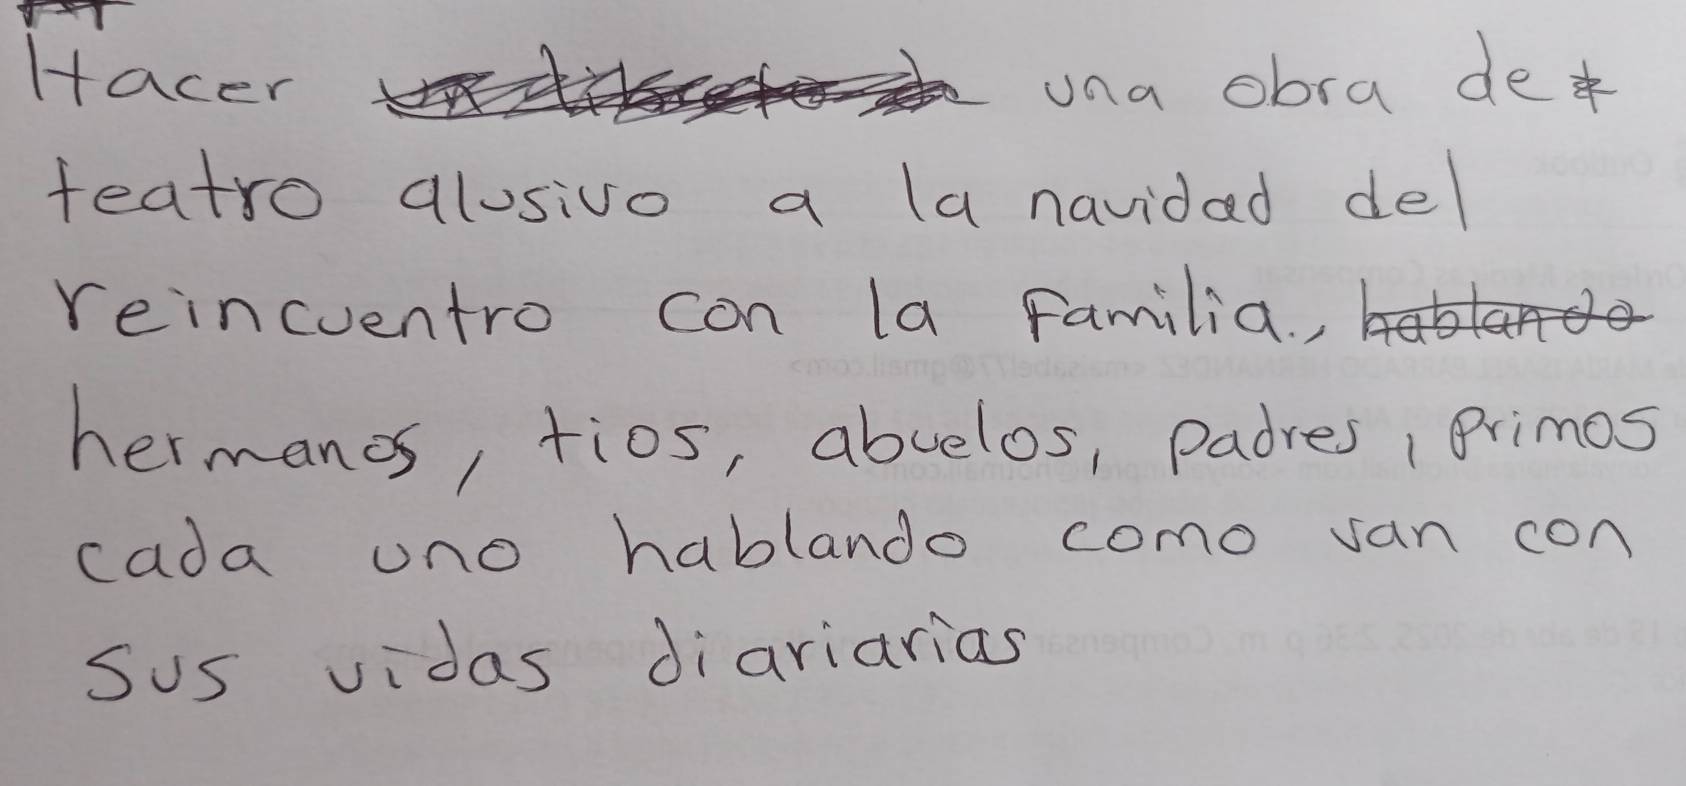 Hacer una obra de
teatro alusivo a la navidad del
reincuentro con la Familia., hablando
hermanos, tios, abuelos, padres, primos
cada uno hablando como van con
sus vidas diariarias